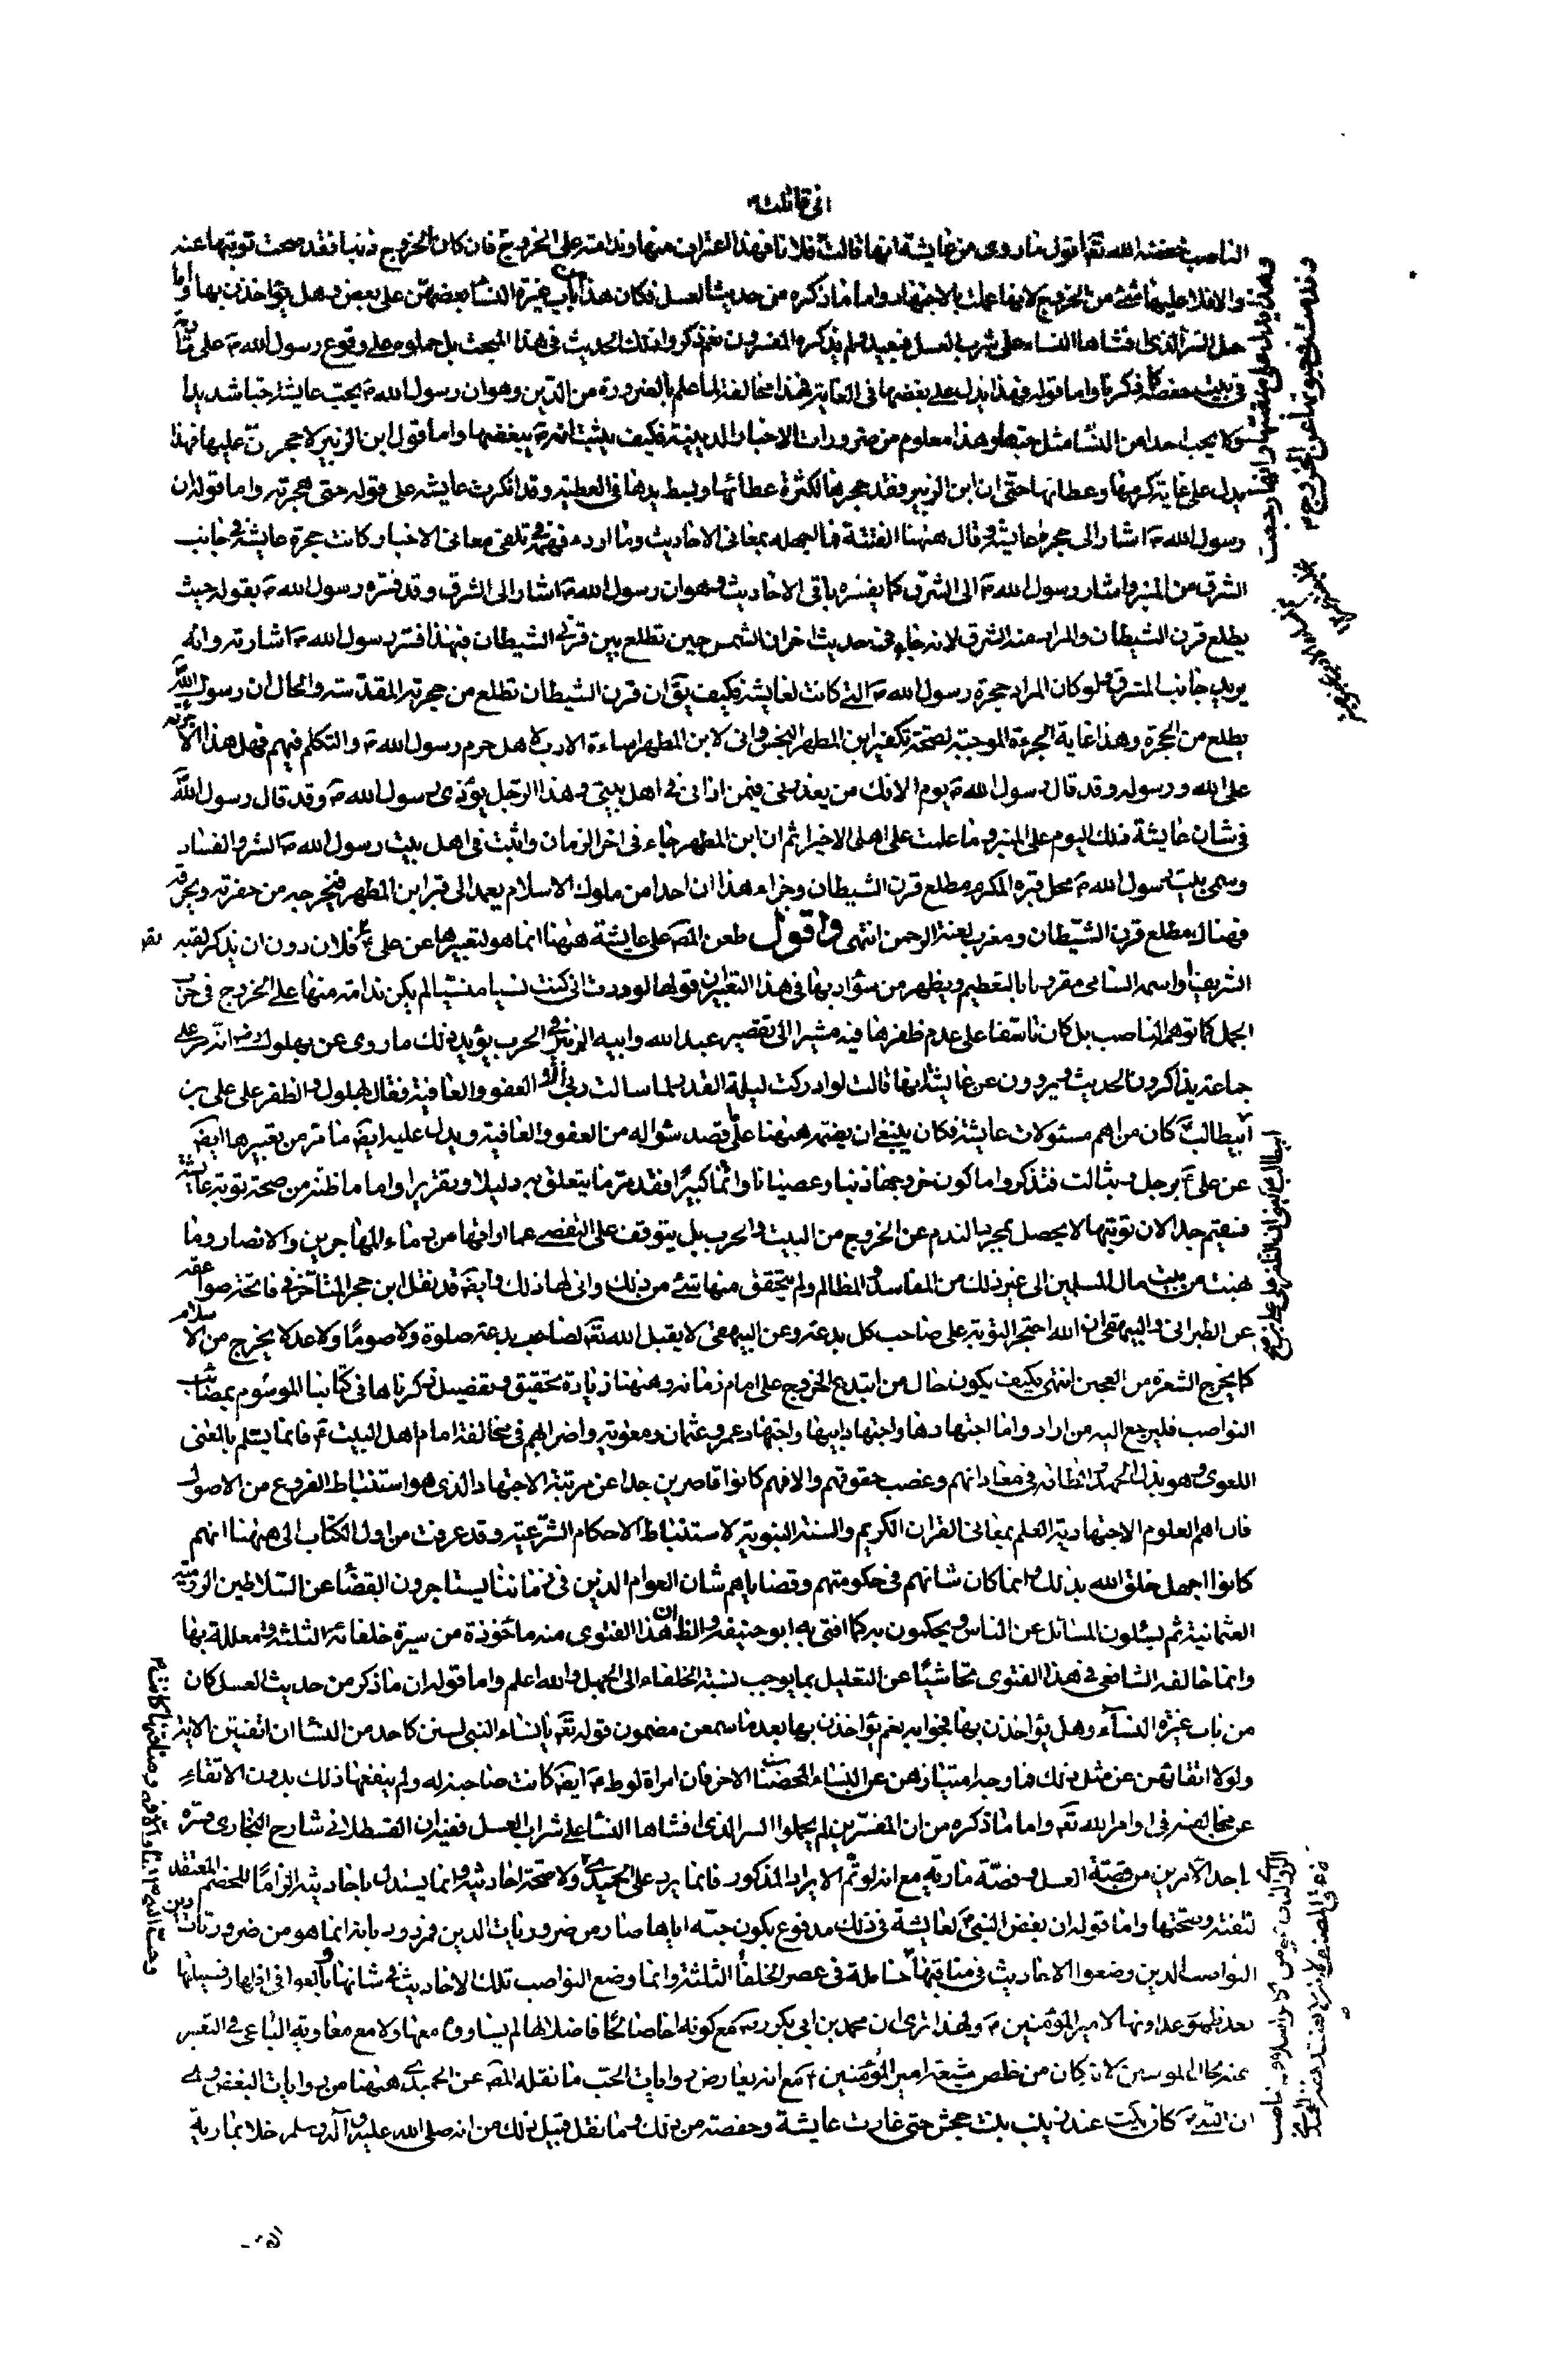 الناصب خفضه الله تعالى اقول ما روى من عايشة انها قالت فلانا فهذا اعتراف منها وندامته على الخروج فان كان الخروج ذنبا فقد صحت توبتها عنه
والا فلا عليها شئ من الخروج لانها عملت بالاجتهاد واما ما ذكره من حديث العسل فكان هذا من باب غيرة النسا بعضهن على بعض وهل يؤاخذن بها واما
حمل السر الذى افشاها النساء على شرب العسل فبعيد لم يذكره المفسرون نعم ذكروا ذلك الحديث فى هذا المبحث بل حملوه على وقوع رسول الله ص على مارية
فى بيت حفصة كما ذكرنا واما قوله فهذا يدل على بغضها فى الغاية فهذا مخالفة لما علم بالضرورة من الدين وهو ان رسول الله ص يحب عايشة حبا شديدا
ولا يحب احدا من النسا مثل حبها وهذا معلوم من ضرورات الاخبار الدينية فكيف يثبت انه ص يبغضها واما قول ابن الزبير لاحجرن عليها فهذا
يدل على غاية كرمها وعطائها حتى ان ابن الزبير وقد حجرها لكثرة عطائها وبسط يدها فى العطية وقد انكرت عايشه على قوله حتى هجرته واما قوله ان
رسول الله ص اشار الى حجرة عايشة وقال هيهنا الفتنة فما اجهله بمعانى الاحاديث وما اردء فهمه فى تلقى معانى الاخبار كانت حجرة عايشة فى جانب
الشرق من المنبر واشار رسول الله ص الى الشرق كما يفسره باقى الاحاديث وهو ان رسول الله ص اشار الى الشرق وقد فسره رسول الله ص بقوله حيث
يطلع قرن الشيطان والمراد منه الشرق لانه جاء فى حديث اخر ان الشمس حين تطلع بين قرنى الشيطان فبهذا فسر رسول الله ص اشارته وانه
يريد جانب المشرق ولو كان المراد حجرة رسول الله ص التى كانت لعايشة فكيف يق ان قرن الشيطان تطلع من حجرته المقدسة والحال ان رسول الله
يطلع من الحجرة وهذا غاية الجرءة الموجبة لصحة تكفير ابن المطهر النجس وانى لابن المطهر اساءة الادب لاهل حرم رسول الله ص والتكلم فيهم فهل هذا الا
على الله ورسوله وقد قال رسول الله ص يوم الافك من يعذرنى فيمن اذانى فى اهل بيتى وهذا الرجل يؤذى رسول الله ص وقد قال رسول الله
فى شان عايشة فى ذلك اليوم على المنبر وما علمت على اهلى الا خيرا ثم ان ابن المطهر جاء فى اخر الزمان واثبت فى اهل بيت رسول الله ص الشر والفساد
وسمى بيت رسول الله ص محل قبره المكرم مطلع قرن الشيطان وجزاء هذا ان احدا من ملوك الاسلام يعمد الى قبر ابن المطهر فيخرجه من حفرته ويحرقه
فهناك مطلع قرن الشيطان ومغرب لعنة الرحمن انتهى واقول طعن المص على عايشة هيهنا انما هو لتعبيرها عن على ع بفلان دون ان يذكر لقبه
الشريف او اسمه السامى مقرونا بالتعظيم ويظهر من سؤ ادبها فى هذا التعبير ان قولها لوددت انى كنت نسيا منسيا لم يكن ندامة منها على الخروج فى حرب
الجمل كما توهم الناصب بل كان تاسفا على عدم ظفرها فيه مشيرا الى تقصير عبد الله وابيه الزبير فى الحرب يؤيد ذلك ما روى عن بهلول رض انه مر على
جماعة يذاكرون الحديث ويروون عن عايشة انها قالت لو ادركت ليلة القدر لما سالت ربى الا العفو والعافية فقال بهلول والظفر على على بن
ابيطالب كان من اهم مسئولات عايشة فكان ينبغى ان يضم هيهنا على قصد سؤاله من العفو والعافية ويدل عليه ايضا ما مر من تعبيرها ايضا
عن على ع برجل وبثالث فتذكر واما كون خروجها ذنبا وعصيانا واثما كبيرا فقد مر ما يتعلق به دليلا وتقريرا واما ما ظنه من صحة توبة عايشة
فسقيم جدا لان توبتها لا يحصل بمجرد الندم عن الخروج من البيت والحرب بل يتوقف على التفصى عما اراقها من دماء المهاجرين والانصار وما
نهبت من بيت مال المسلمين الى غير ذلك من المفاسد والمظالم ولم يتحقق منها شئ من ذلك وانى لها ذلك وايضا قد نقل ابن حجر المتاخر فى صواعقه
عن الطبرانى والبيهقى ان الله احتجر التوبة على صاحب كل بدعة وعن البيهقى لا يقبل الله تعالى لصاحب بدعة صلوة ولا صوما ولا عدلا يخرج من الاسلام
كما يخرج الشعرة من العجين انتهى فكيف يكون حال من ابتدع الخروج على امام زمانه وهيهنا زيادة تحقيق وتفصيل ذكرناها فى كتابنا الموسوم بمصائب
النواصب فليرجع اليه من اراد واما اجتهادها واجتهاد ابيها واجتهاد عمر وعثمان ومعوية واضرابهم فى مخالفة امام اهل البيت ع فانما يسلم بالمعنى
اللغوى وهو بذل الجهد والطاقة فى معاداتهم وغصب حقوقهم والا فهم كانوا قاصرين جدا عن مرتبة الاجتهاد الذى هو استنباط الفروع من الاصول
فان اهم العلوم الاجتهادية العلم بمعانى القران الكريم والسنة النبوية لاستنباط الاحكام الشرعية وقد عرفت من اول الكتاب الى هيهنا انهم
كانوا اجهل خلق الله بذلك وانما كان شانهم فى حكومتهم وقضاياهم شان العوام الذين فى زماننا يستاجرون القضا عن السلاطين الرومية
العثمانية ثم يسئلون المسائل عن الناس ويحكمون به كما افتى به ابو حنيفه والظ ان هذا الفتوى منه ماخوذة من سيرة خلفائه الثلثة ومعللة بها
وانما خالفه الشافعى فى هذا الفتوى تحاشيا عن التعليل بما يوجب نسبة الخلفاء الى الجهل والله اعلم واما قوله ان ما ذكر من حديث العسل كان
من باب غيرة النساء وهل يؤاخذن بها فجوابه نعم يؤاخذن بها بعد ما سمعن مضمون قوله تعالى يا نساء النبى لستن كاحد من النسا ان اتقيتن الاية
ولولا اتقائهن عن مثل ذلك فما وجه امتيازهن عن النساء الاخر فان امراة لوط ع ايضا كانت صاحبة له ولم ينفعها ذلك بدون الاتقاء
عن مخالفته فى اوامر الله تعالى واما ما ذكره من ان المفسرين لم يحملوا السر الذى افشاها النسا على شراب العسل ففيه ان القسطلانى شارح البخارى فسره
باحد الامرين من قصة العسل وقصة مارية مع انه لو تم الايراد المذكور فانما يرد على الحميدى ولا صحة احاديثه وانما يستدل باحاديثه الزاما للخصم المعتقد
لثقته وصحتها واما قوله ان بغض النبى ص لعايشة فى ذلك مدفوع بكون حبه اياها صار من ضروريات الدين فمردود بانه انما هو من ضروريات دين
النواصب الذين وضعوا الاحاديث فى مناقبها حاملة فى عصر الخلفا الثلثة وانما وضع النواصب تلك الاحاديث فى شانها وبالغوا فى
بعد ظهور عداوتها لامير المؤمنين ع ولهذا نرى ان محمد بن ابى بكر مع كونه اخا صالحا فاضلا لها لم يساووه معها ولا مع معاوية الباغى فى التعبير
عنه بخال المومنين لانه كان من خلص شيعة امير المؤمنين ع مع انه يعارض روايات الحب ما نقله المص عن الحميدى هيهنا من روايات البغض
ان النبى ص كان يمكث عند زينب بنت جحش حتى غارت عايشة وحفصة من ذلك وما نقل قبيل ذلك من انه صلى الله عليه وآله وسلم خلا بمارية